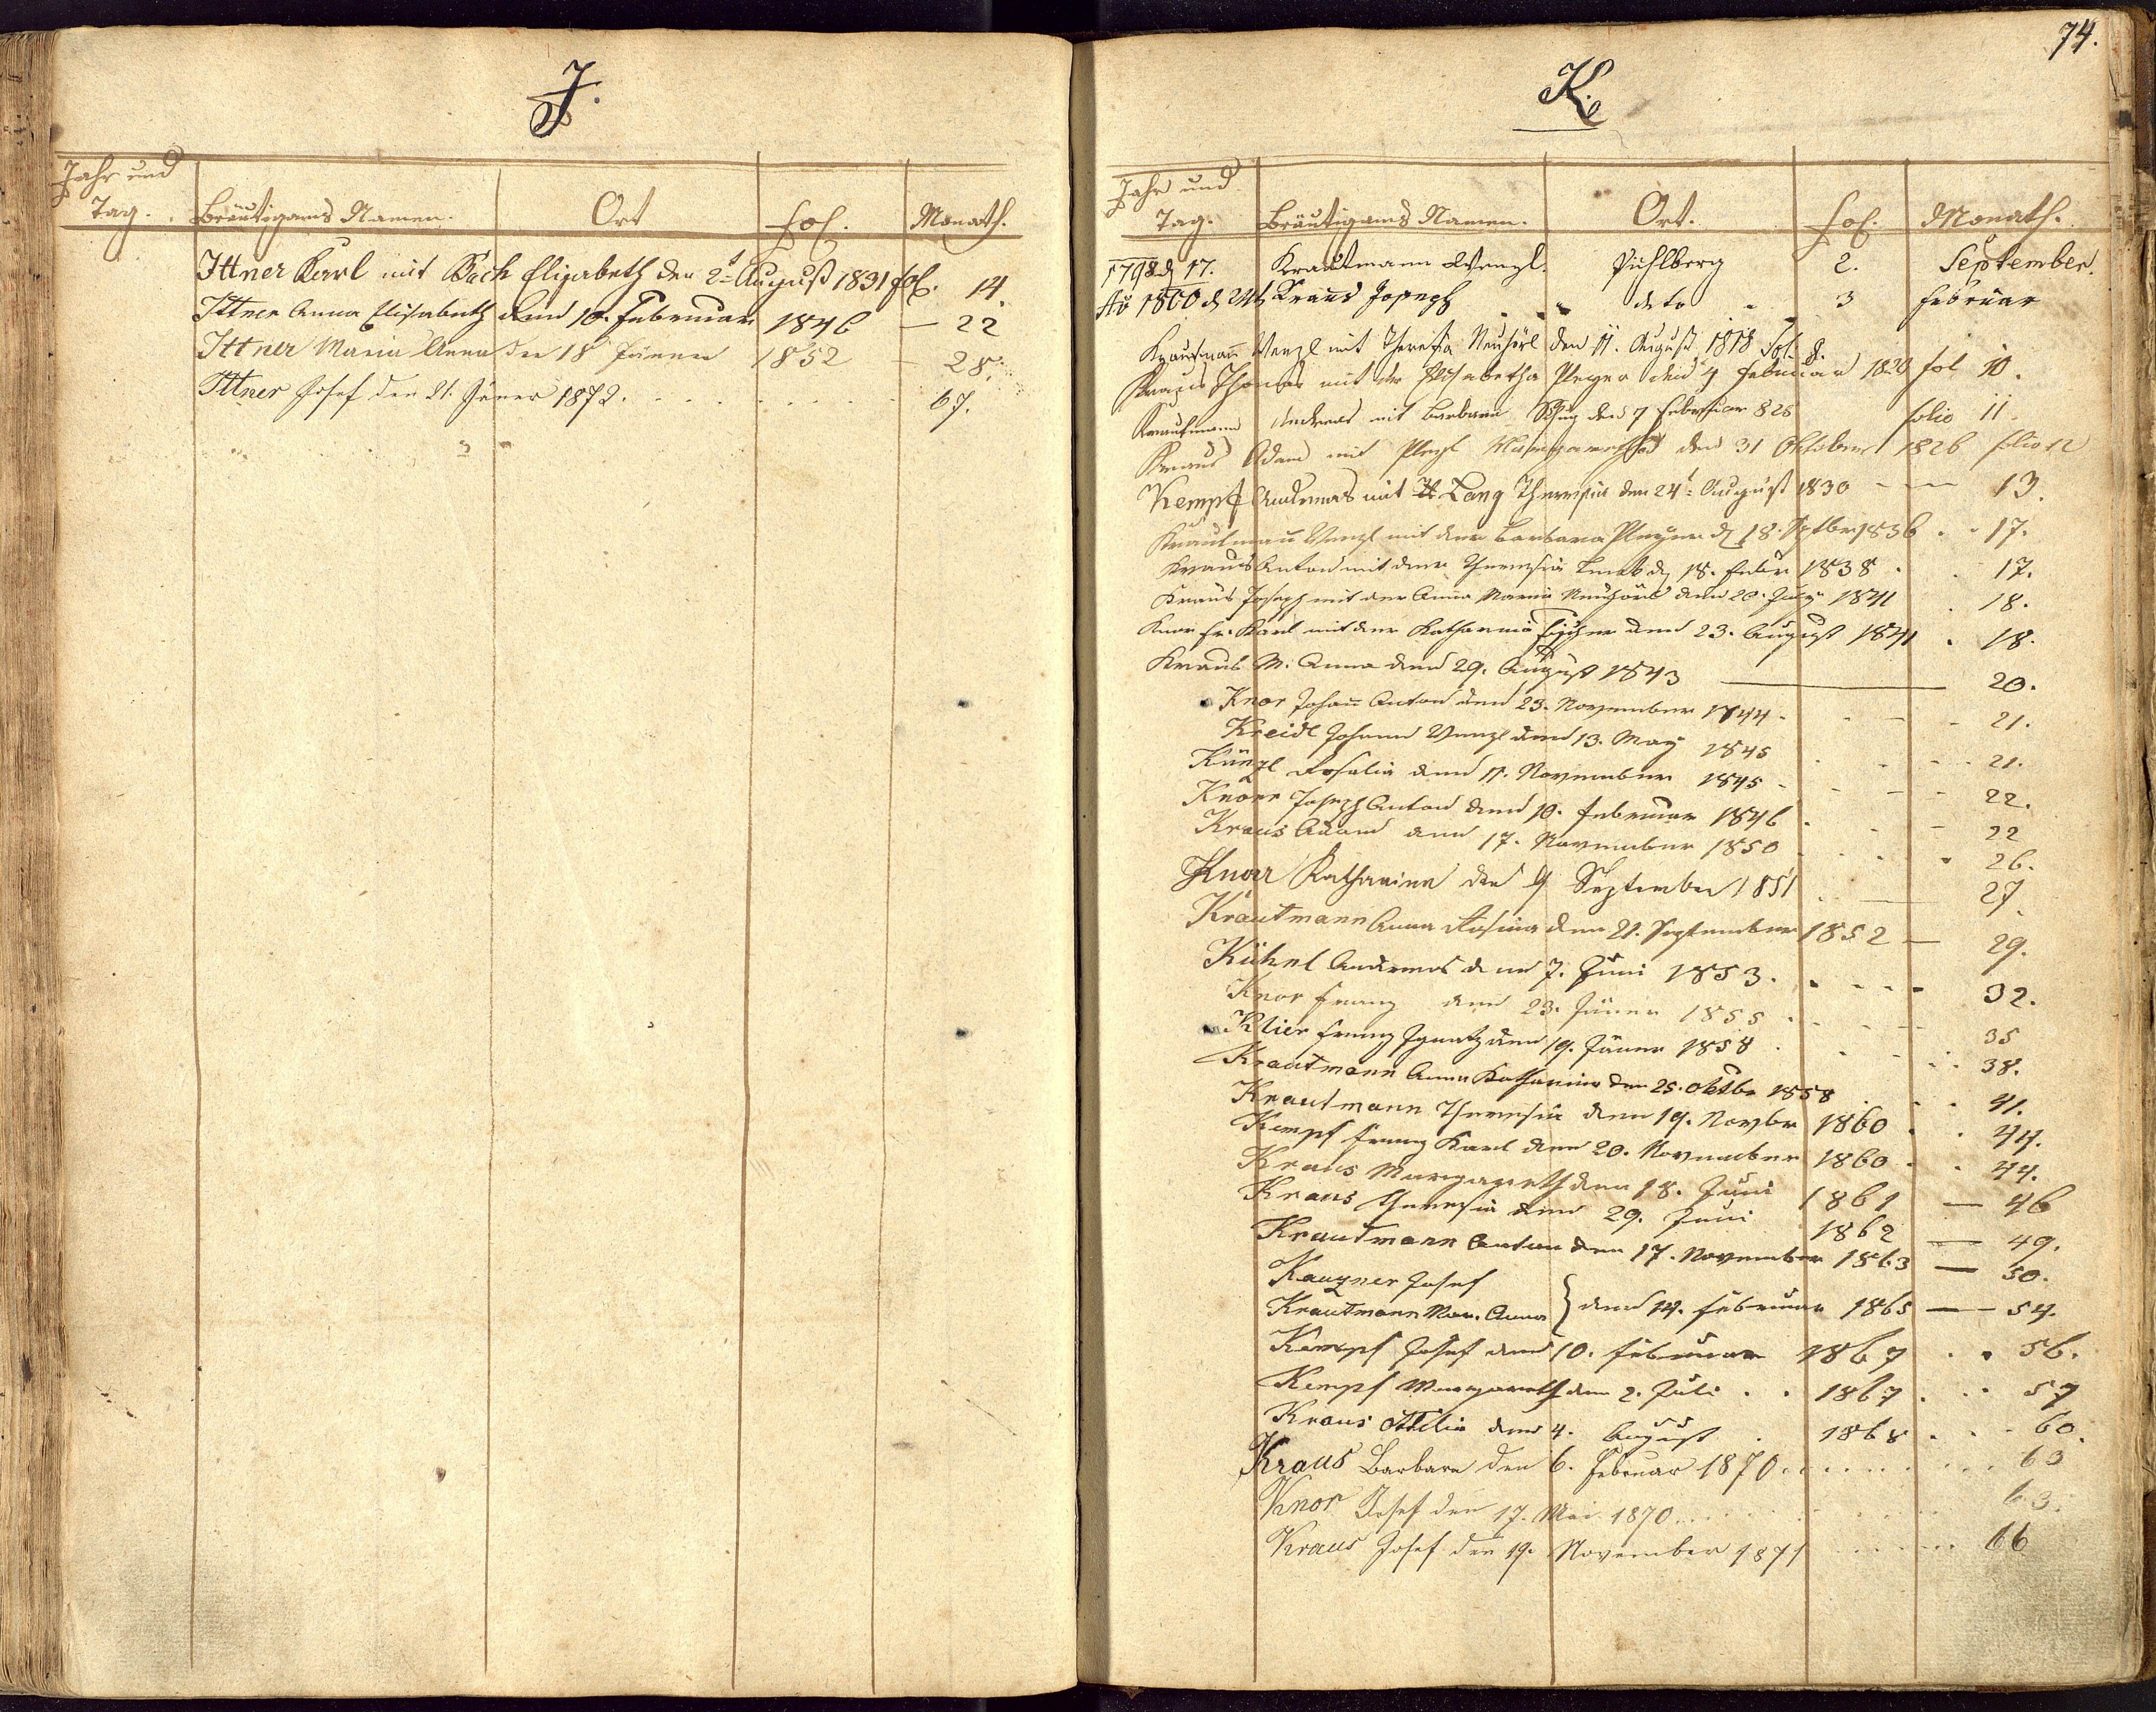 J.
Jahr und
Tag. Bräutigams Namen. Ort fol. Monath.
Ittner Karl mit Bach Elisabeth den 2t August 1831 fol. 14.
Ittner Anna Elisabeth den 10. Februar 1846 — 22
Ittner Maria Anna den 18 Jänner 1852 — 28.
Ittner Josef den 21. Jäner 1872. . . . . . . 67.
74.
K.
Jahr und
Tag. Bräutigams Namen. Ort. fol. Monath.
1798 d 17. Krautmann Wenzl. Pichlberg 2. September.
1800 d 24t Kraus Joseph " deto " 3 Februar
Krautmann Wenzl mit Theresia Neuhörl den 11. August 1818 fol. 9.
Kraus Thomas mit der Elisabetha Pleyer den 4 Februar 1823 fol 10.
Krautmann Andreas mit Barbara den 7 Februar 826 folio 11.
Kraus Adam mit Margaretha den 31 Oktober 1826 folio 12
Kempf Andreas mit Lang Theresia den 24t August 1830 — — 13.
Krautmann Wenzl mit der Barbara Pleyer d 18. Septbr 1836 . . 17.
Kraus Anton mit der Theresia d 18. Febr 1838 . . 17.
Kraus Joseph mit der Anna Maria Neuhörl den 20. July 1841 . 18.
Knor Fr. Karl mit der Katharina Fischer den 23. August 1841 . 18.
Kraus M. Anna den 29. August 1843 — 20.
Knor Johann Anton den 23. November 1844 - - - 21.
Kreidl Johann Wenzl den 13. May 1845 - - - 21.
Künzl Rosalia den 11. November 1845 - - - 22.
Knorr Joseph Anton den 10. Februar 1846 - - - 22
Kraus Adam den 17. November 1850 - - - 26.
Knorr Katharina den 9 September 1851 — 27.
Krautmann Anna Rosina den 21. September 1852 — 29.
Kühnl Andreas den 7. Juni 1853. . . . . 32.
Knor Franz den 23. Jänner 1855 . . . . 35
Klier Franz Ignatz den 19. Jänner 1858 . . . 38.
Krautmann Anna Katharina den 25. Oktbr 1858 . . . 41.
Krautmann Theresia den 19. Novbr 1860 . . 44.
Kempf Franz Karl den 20. November 1860 . . 44.
Kraus Margareth den 18. Juni 1861 — 46
Kraus Theresia den 29. Juni 1862 — 49.
Krautmann Anton den 17. November 1863 — 50.
Kauzner Josef
Krautmann Mar. Anna } den 14. Februar 1865 — 54.
Kempf Josef den 10. Februar 1867 . . 56.
Kempf Margareth den 2. Juli . . 1867 . . . 57
Kraus Ottilia den 4. August . 1868 . . . 60.
Kraus Barbara den 6. Februar 1870 . . . . . . . 63
Knor Josef den 17. Mai 1870 . . . . . . 63.
Kraus Josef den 19. November 1871 . . . . . . 66